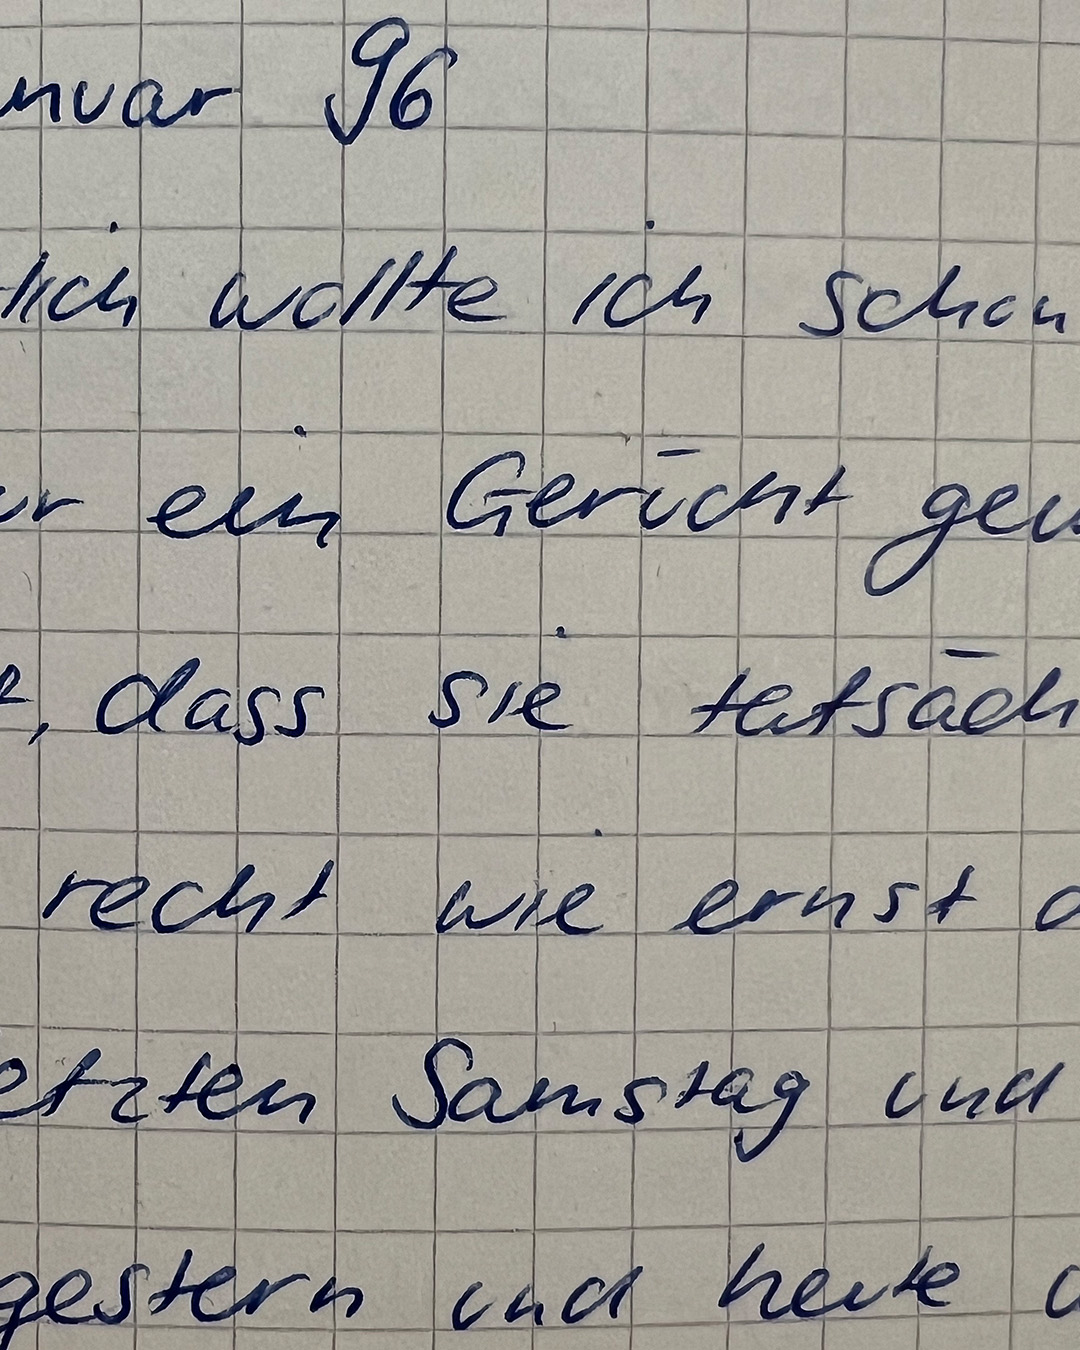 nuar 96
tlich wollte ich schon
ur ein Gerücht gew
t, dass sie tatsäch
recht wie ernst d
etzten Samstag und
gestern und heute d